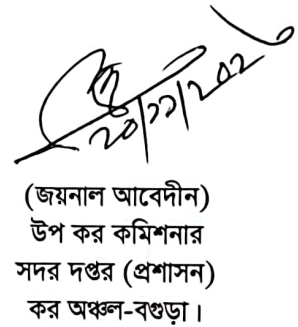 (জয়নাল আবেদীন)
উপ কর কমিশনার
সদর দপ্তর (প্রশাসন)
কর অঞ্চল-বগুড়া।